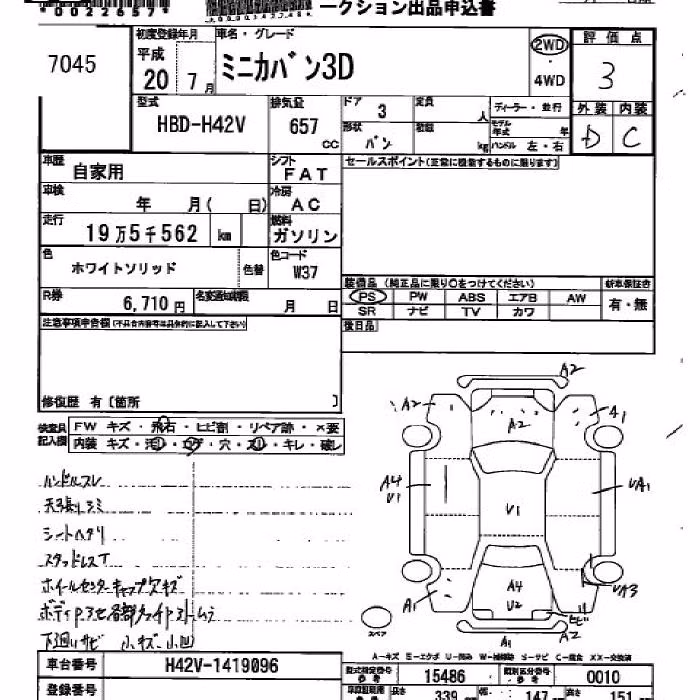 *0022657*
ークション出品申込書
7045
初度登録年月
車名・グレード
平成
20 7月
ミニカバン3D
2WD
・
4WD
評価点
3
型式
HBD-H42V
排気量
657
cc
ドア 3
定員
人
ディーラー・並行
外装 内装
形状
バン
積載
kg
モデル年式
年
ハンドル 左・右
D C
車歴
自家用
シフト
FAT
セールスポイント(正常に機能するものに限ります)
車検
年 月( 日)
冷房
AC
走行
19万5千562 km
燃料
ガソリン
色
ホワイトソリッド
色替
色コード
W37
R券
6,710円
名変通知期限
月 日
装備品 (純正品に限り○をつけてください)
新車保証書
PS PW ABS エアB AW
有・無
SR ナビ TV カワ
注意事項申告欄(不具合内容等は具体的に記入して下さい)
後日品
修復歴 有〔箇所 〕
検査員
記入欄
FW キズ・飛石・ヒビ割・リペア跡・×要
内装 キズ・汚レ・コゲ・穴・スレ・キレ・破レ
ハンドルスレ
天張リシミ
シートヘタリ
スタッドレスT
ホイールセンターキャップ欠キズ
下廻リサビ 小キズ・小凹
A2
A2
A2
A1
A4
V1
V1
VA1
A4
U2
A1
VA3
ヒビ
A2
A1
スペア
A-キズ E-エクボ U-凹み W-補修跡 S-サビ C-腐食 XX-交換済
車台番号
H42V-1419096
型式指定番号
参考
15486
類別区分番号
参考
0010
登録番号
長さ
339
幅
147
高さ
151